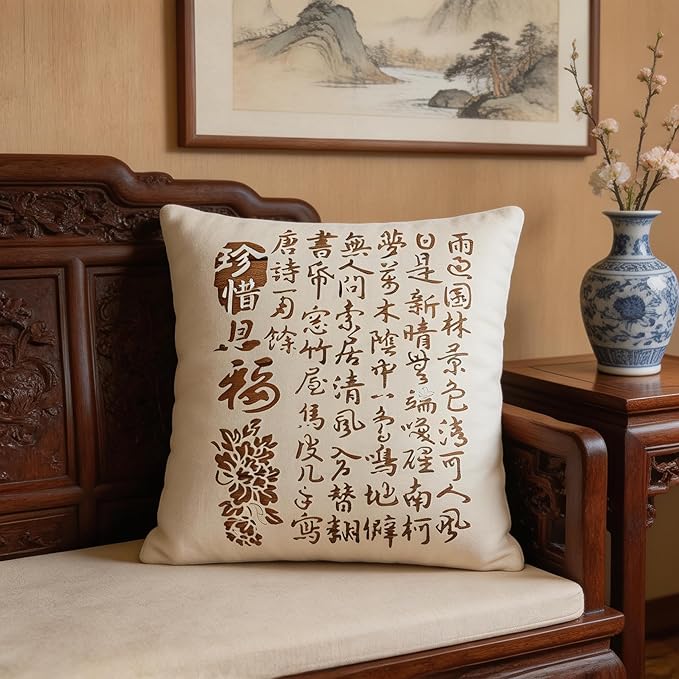 雨過園林景色清可人風
日是新晴無端喚醒南柯
夢萬木陰中一鳥鳴地僻
無人問索居清風入戶替翻
書窓竹屋寫
唐詩餘
珍惜福